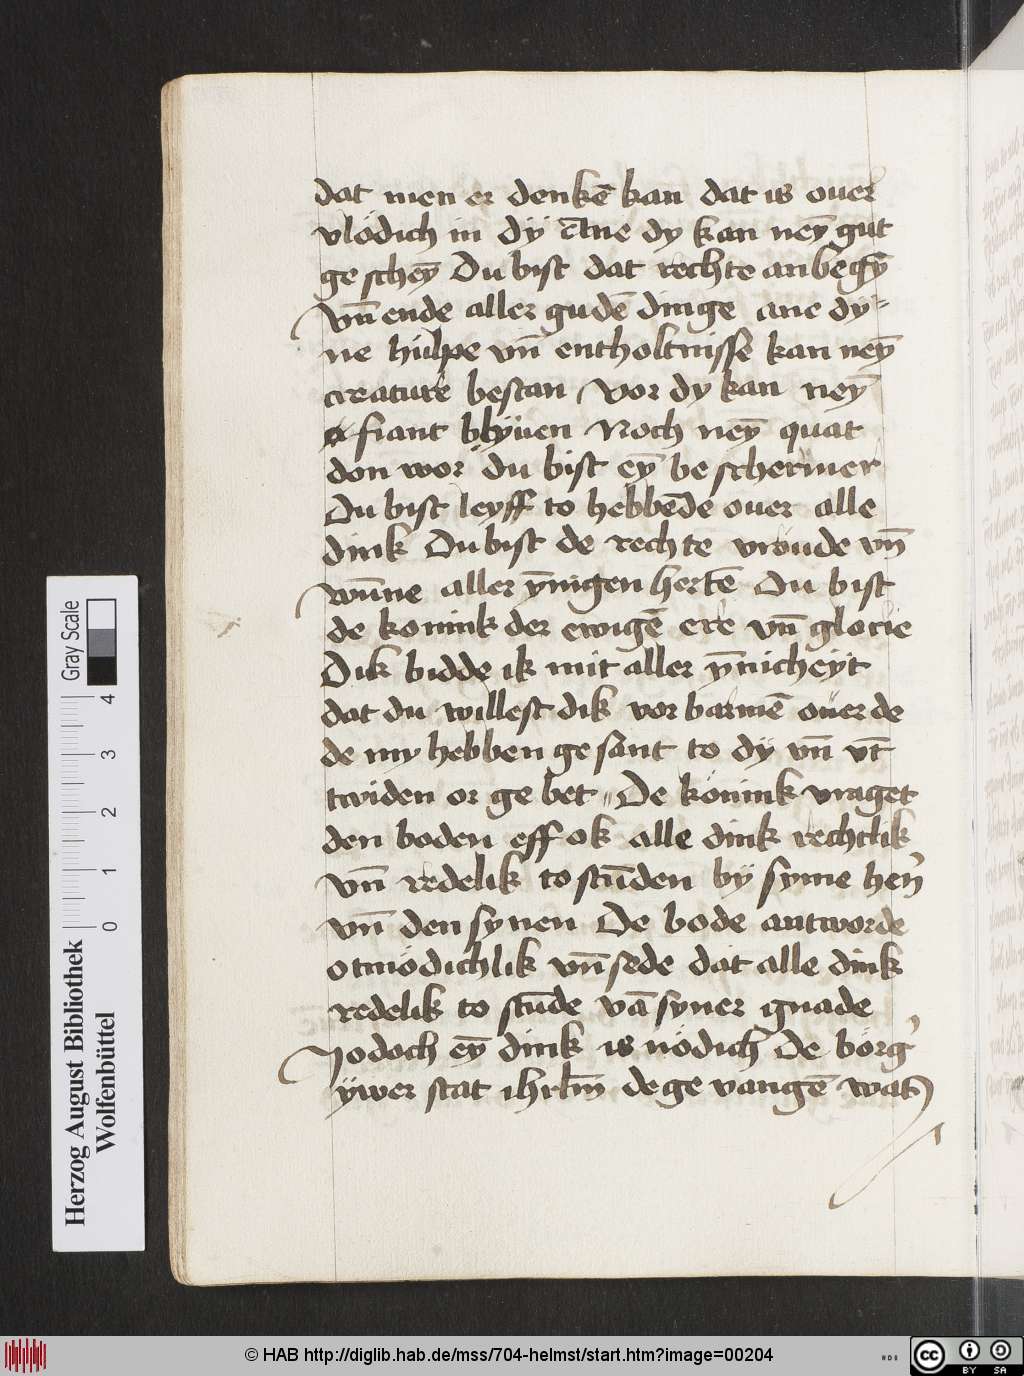 dat men er denkē kan dat is ouer
vlödich in dÿ Ane dy kan neȳ gut
ge scheȳ Du bist dat rechte anbegȳ
vn̄ ende aller gudē dinge ane dy⸗
ne hülpe vn̄ entholtnisse kan neȳ
creature bestan vor dy kan neȳ
fiant blÿuen Noch neȳ quat
don wor du bist eȳ be schermer
Du bist leyff to hebbēde ouer alle
dink Du bist de rechte vröude vn̄
wūne aller ȳnigen hertē Du bist
de konink der ewigē ere vn̄ glorie
Dik bidde ik mit aller ȳnicheyt
dat du willest dik vor barmē ouer de
de my hebben ge sant to dÿ vn̄ vt̄
twiden or ge bet De könink vraget
den boden eff ok alle dink rechtlik
vn̄ redelik to stūden bÿ syme hen̄
vn̄ den synen De bode antworde
otmödichlik vn̄ sede dat alle dink
redelik to stūde vā syner gnade
Jodoch eȳ dink is nödich De börg'
ÿwer stat ihrlm̄ de ge vangē wat
Herzog August Bibliothek
Wolfenbüttel
0 1 2 3 4
Gray Scale
© HAB http://diglib.hab.de/mss/704-helmst/start.htm?image=00204
cc BY SA